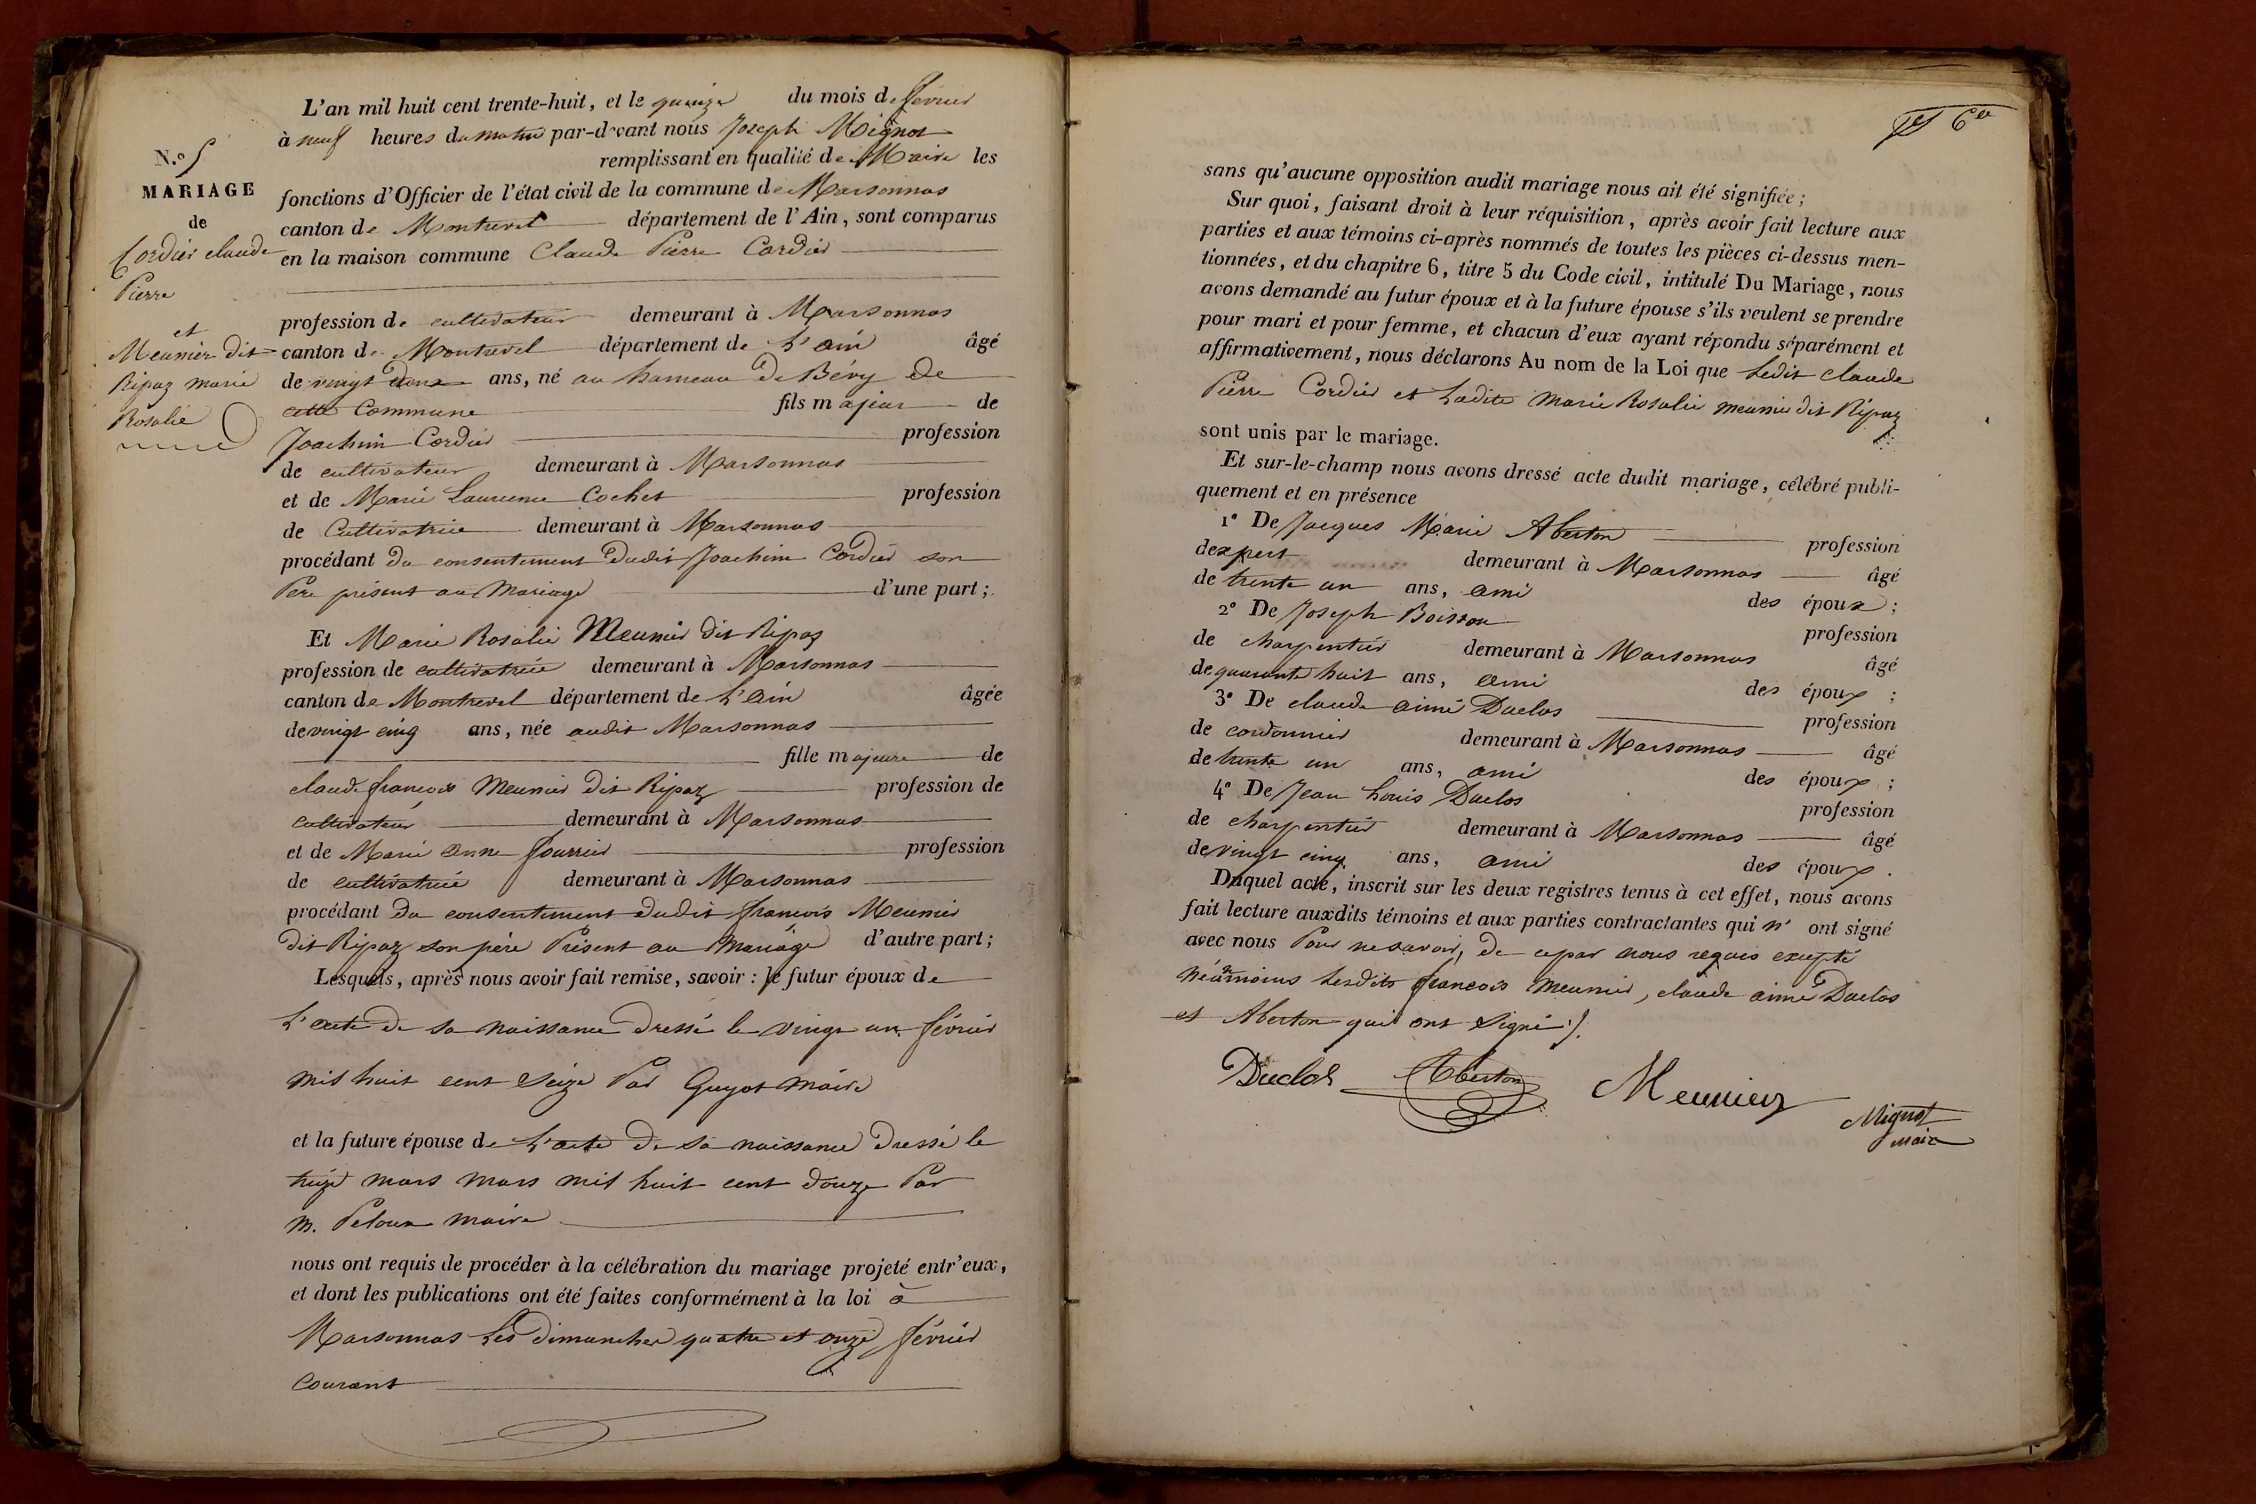 N.o 5
MARIAGE
de
Cordier claude
Pierre
et
Meunier dit
Ripaz marie
Rosalie
L'an mil huit cent trente-huit, et le quinze du mois de février
à neuf heures du matin par-devant nous Joseph Mignot
remplissant en qualité de Maire les
fonctions d'Officier de l'état civil de la commune de Marsonnas
canton de Montrevel département de l'Ain, sont comparus
en la maison commune Claude Pierre Cordier
profession de cultivateur demeurant à Marsonnas
canton de Montrevel département de L'ain âgé
de vingt deux ans, né au hameau De Bévy de
cette Commune fils majeur de
Joachim Cordier profession
de cultivateur demeurant à Marsonnas
et de Marie Laurence Cochet profession
de Cultivatrice demeurant à Marsonnas
procédant du consentement dudit Joachim Cordier son
Père présent au Mariage d'une part;
Et Marie Rosalie Meunier dit Ripaz
profession de cultivatrice demeurant à Marsonnas
canton de Montrevel département de L'ain âgée
de vingt cinq ans, née audit Marsonnas
fille majeure de
claude françois Meunier dit Ripaz profession de
cultivateur demeurant à Marsonnas
et de Marie anne fourrier profession
de cultivatrice demeurant à Marsonnas
procédant du consentement dudit françois Meunier
dit Ripaz son père Présent au Mariage d'autre part;
Lesquels, après nous avoir fait remise, savoir : le futur époux de
L'acte de sa naissance dressé le vingt un février
mil huit cent seize Par Guyot maire
et la future épouse de L'acte de sa naissance dressé le
treize mars mars mil huit cent douze Par
m. Peloux maire
nous ont requis de procéder à la célébration du mariage projeté entr'eux,
et dont les publications ont été faites conformément à la loi à
Marsonnas Les dimanches quatre et onze février
courant
6
sans qu'aucune opposition audit mariage nous ait été signifiée;
Sur quoi, faisant droit à leur réquisition, après avoir fait lecture aux
parties et aux témoins ci-après nommés de toutes les pièces ci-dessus men-
tionnées, et du chapitre 6, titre 5 du Code civil, intitulé Du Mariage, nous
avons demandé au futur époux et à la future épouse s'ils veulent se prendre
pour mari et pour femme, et chacun d'eux ayant répondu séparément et
affirmativement, nous déclarons Au nom de la Loi que Ledit claude
Pierre Cordier et Ladite Marie Rosalie meunier dit Ripaz
sont unis par le mariage.
Et sur-le-champ nous avons dressé acte dudit mariage, célébré publi-
quement et en présence
1° De Jacques Marie Aberton profession
dexpert demeurant à Marsonnas âgé
de trente un ans, ami des époux;
2° De Joseph Boisson profession
de charpentier demeurant à Marsonnas âgé
de quarante huit ans, ami des époux;
3° De claude aimé Duclos profession
de cordonnier demeurant à Marsonnas âgé
de trente un ans, ami des époux;
4° De Jean Louis Duclos profession
de charpentier demeurant à Marsonnas âgé
de vingt cinq ans, ami des époux.
Duquel acte, inscrit sur les deux registres tenus à cet effet, nous avons
fait lecture auxdits témoins et aux parties contractantes qui n' ont signé
avec nous Pour ne savoir, de ce par nous requis excepté
néanmoins Lesdits françois Meunier, claude aimé Duclos
et Aberton qui ont signé ./.
Duclos Aberton Meunier
Mignot
Maire